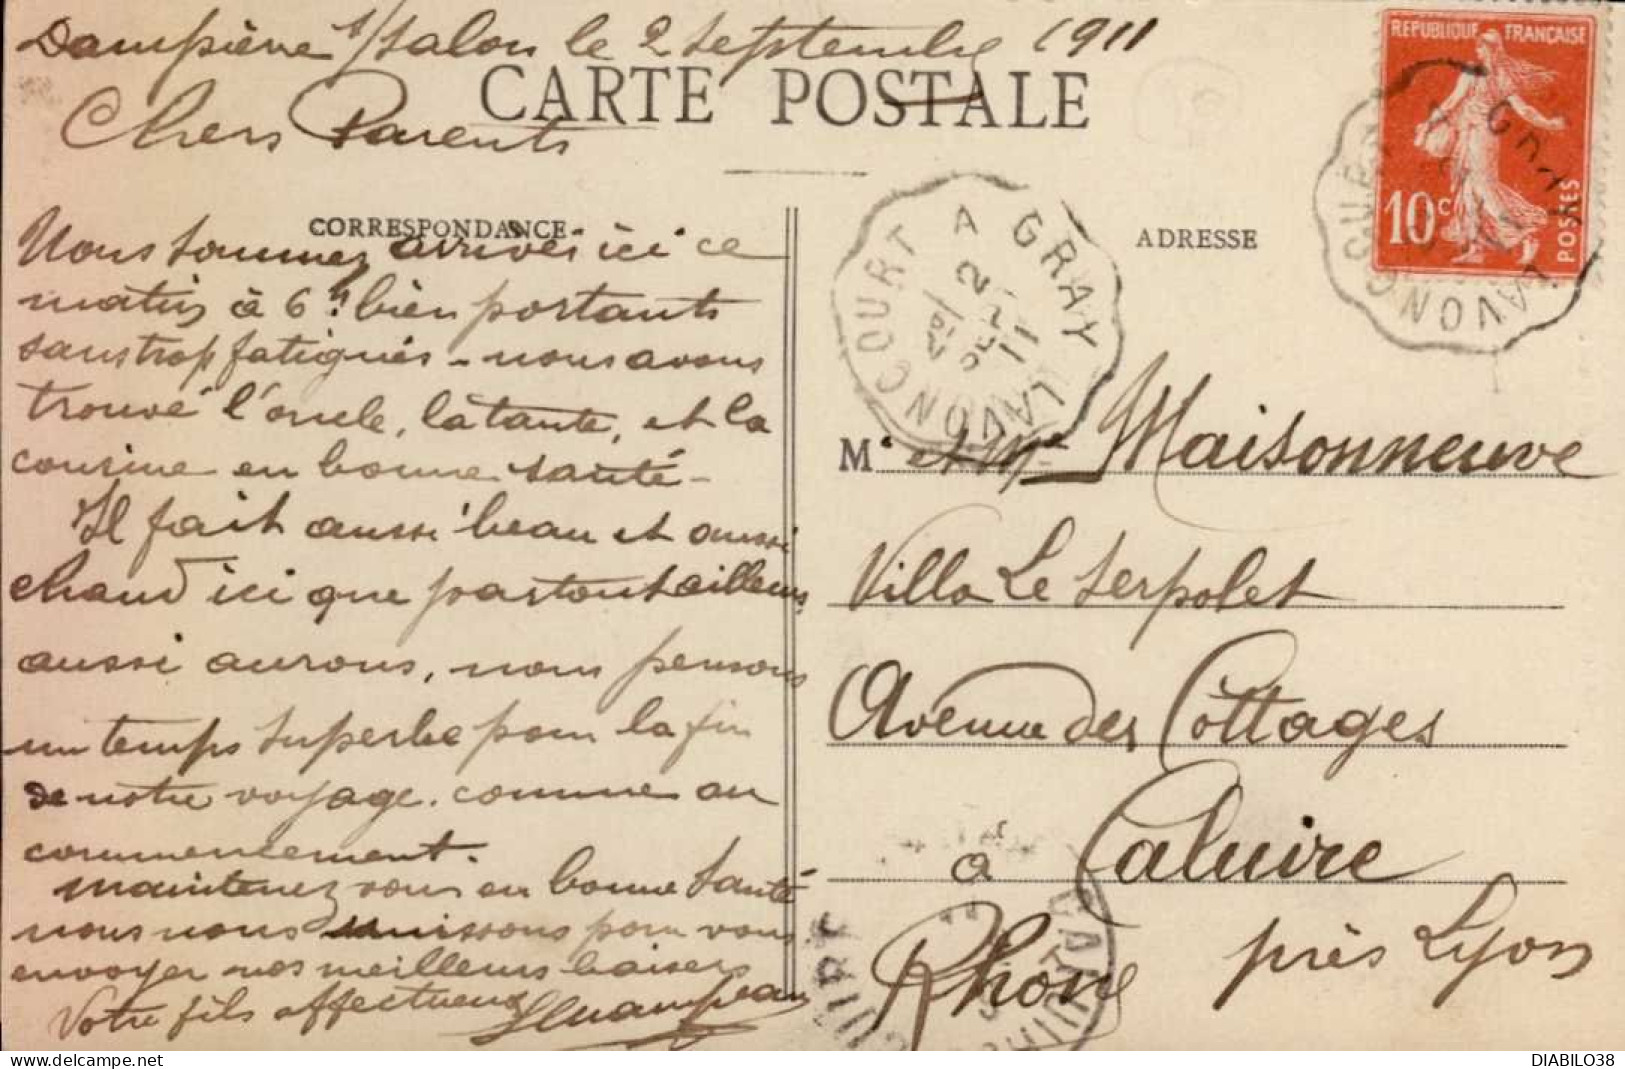 Dampierre s/ Salon le 2 Septembre 1911
CARTE POSTALE
Chers Parents
CORRESPONDANCE
Nous sommes arrivés ici ce
matin à 6h bien portants
sans trop fatigués - nous avons
trouvé l'oncle, la tante, et la
cousine en bonne santé -
Il fait aussi beau et aussi
chaud ici que partout ailleurs
aussi aurons, nous pensons
un temps superbe pour la fin
de notre voyage. comme au
commencement.
maintenez vous en bonne santé
nous nous unissons pour vous
envoyer nos meilleurs baisers
Votre fils affectueux
ADRESSE
REPUBLIQUE FRANÇAISE
10c
POSTES
GRAY A LAVONCOURT
2
SEPT
11
M. et Mme Maisonneuve
Villa Le Serpolet
Avenue des Cottages
à Caluire
Rhône près Lyon
DIABILO38